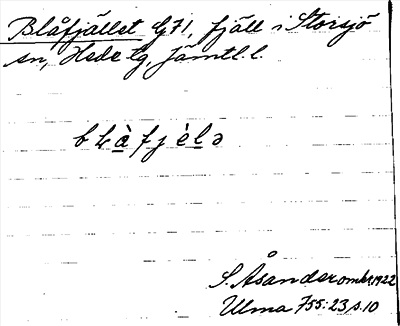 Blåfjället G71, fjäll i Storsjö
sn, Hede tg, Jämtl. l.
bɫàfjèlə
S. Åsander omkr. 1922
Ulma 755:23 s. 10